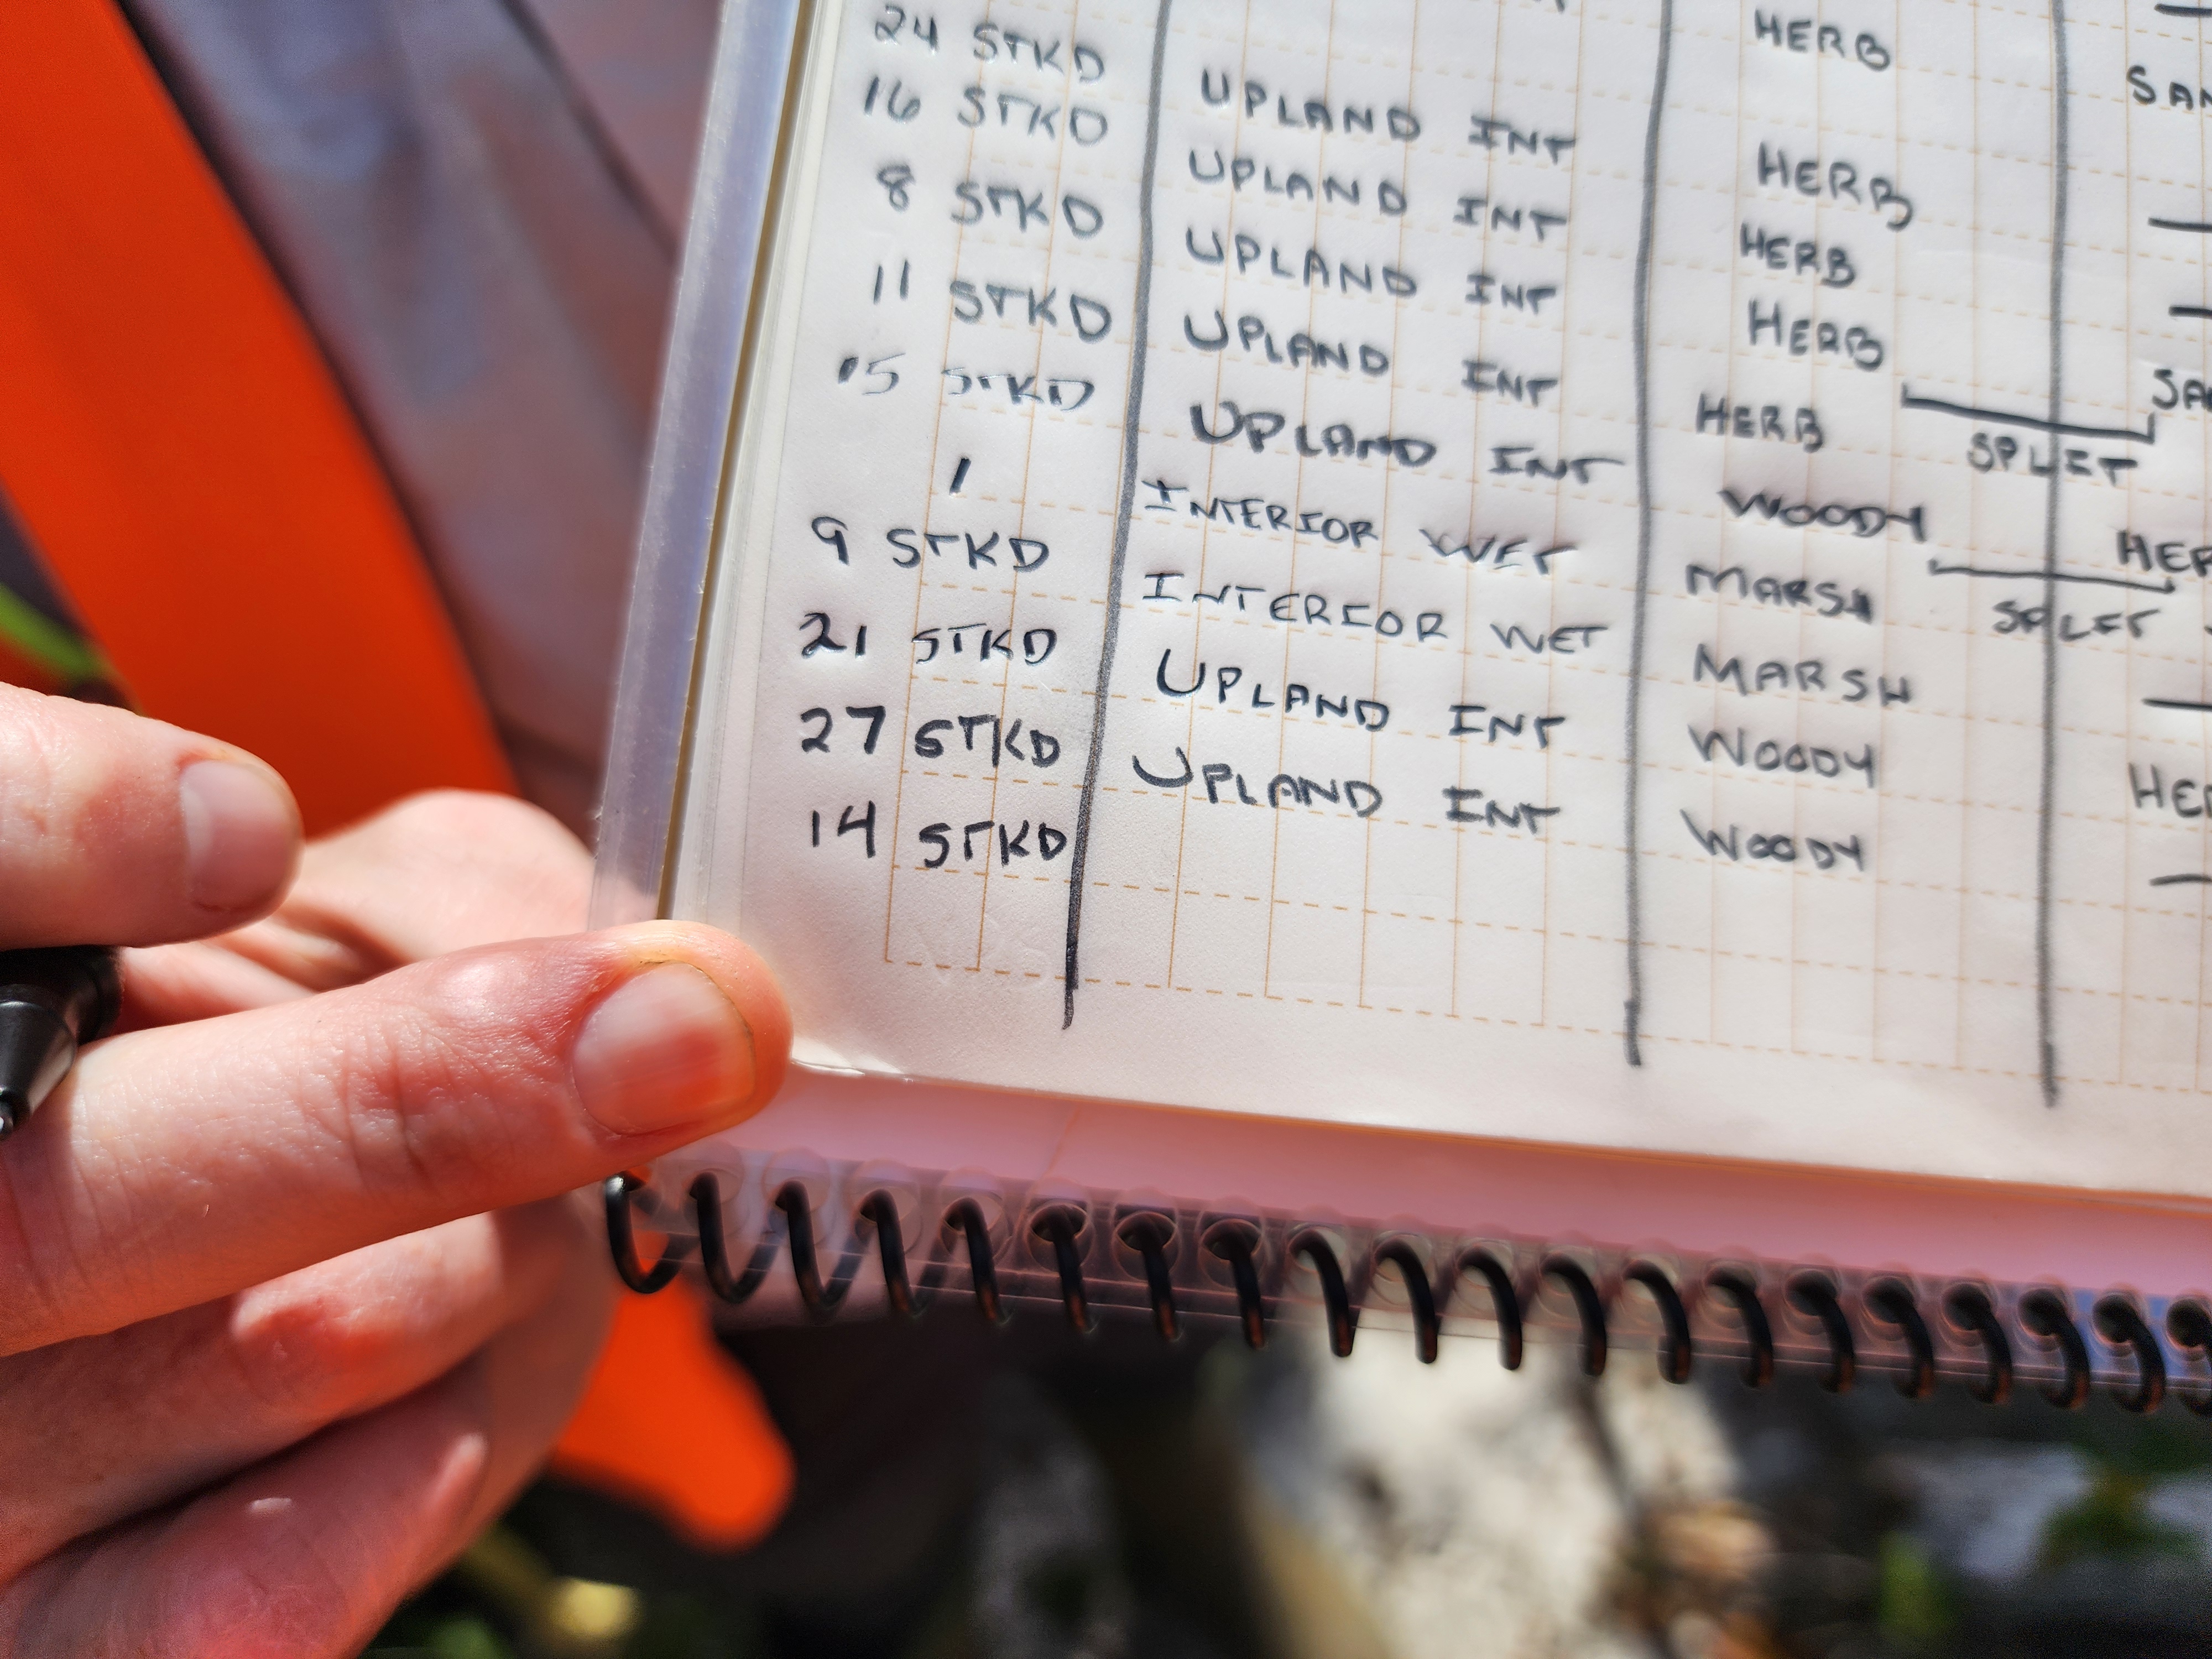 24 STKD HERB SAN
16 STKD UPLAND INT HERB
8 STKD UPLAND INT HERB
11 STKD UPLAND INT HERB
15 STKD UPLAND INT HERB SPLIT
1 UPLAND INT WOODY HER
9 STKD INTERIOR WET MARSH SPLIT
21 STKD INTERIOR WET MARSH
27 STKD UPLAND INT WOODY HER
14 STKD UPLAND INT WOODY